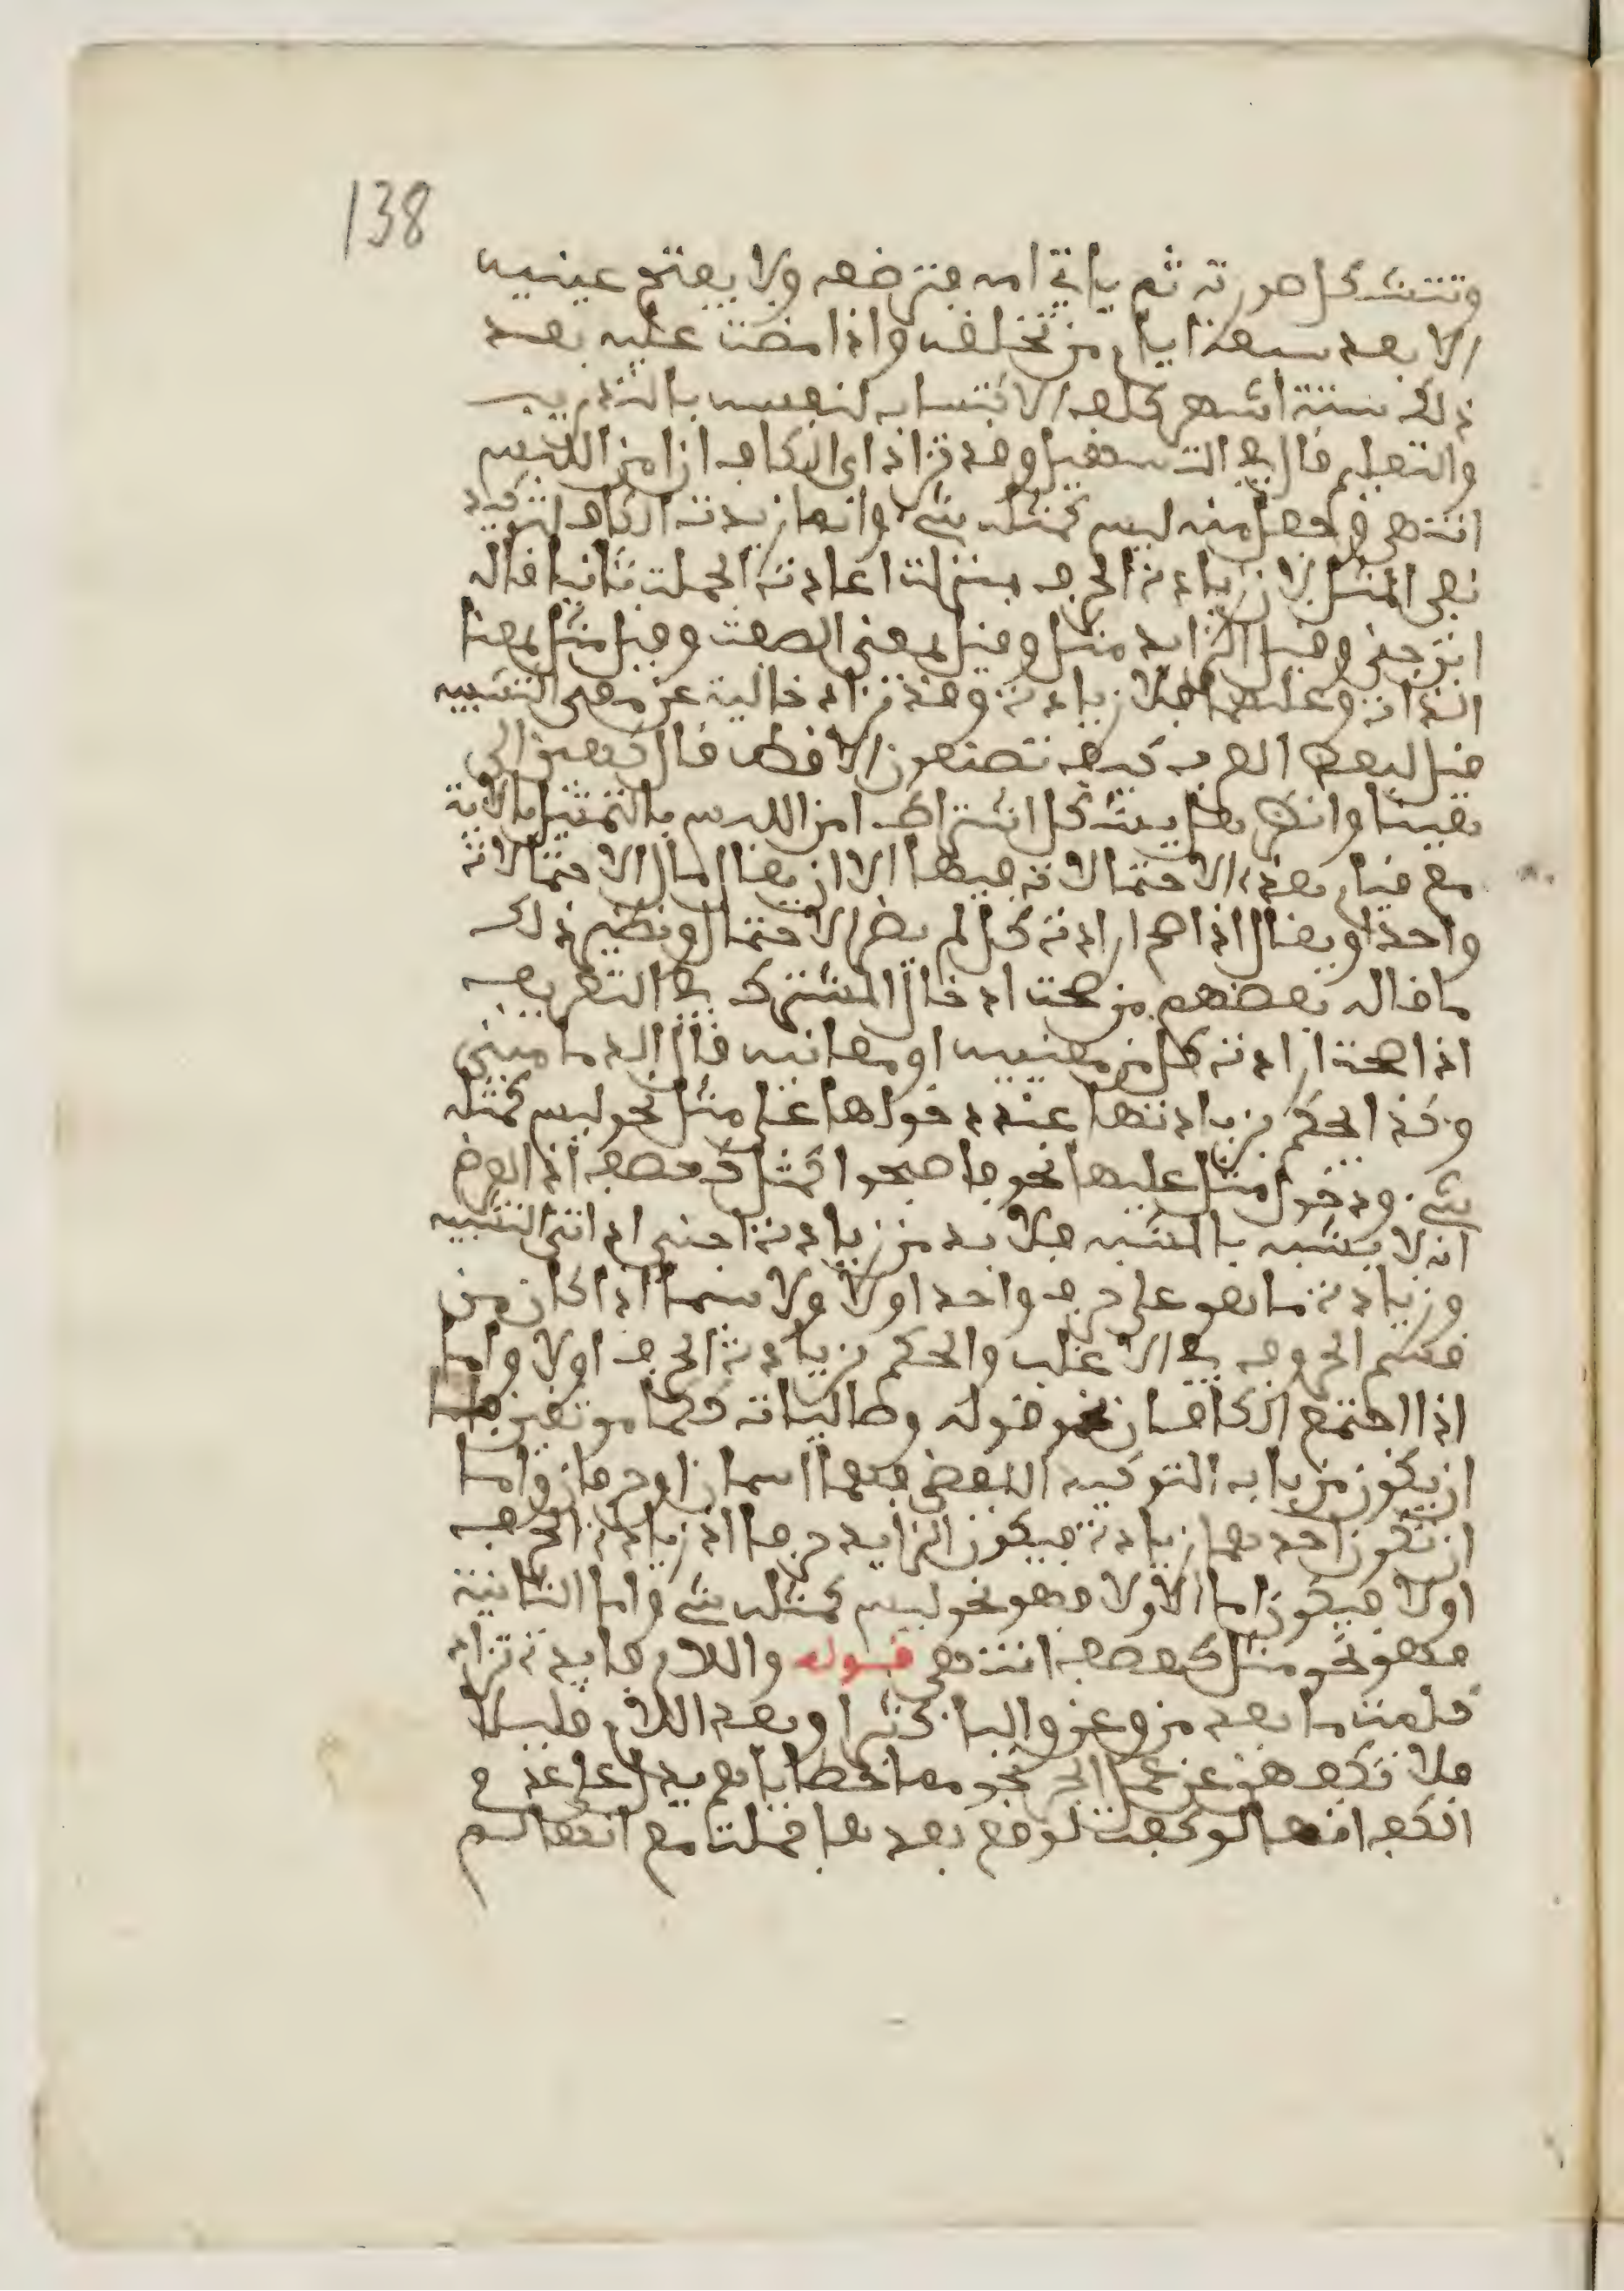 138
وتتشكل صورته ثم ياتي امه فترضعه ولا يفتح عينيه
الا بعد سبعة ايام من تخلفه واذا مضت عليه بعد
ذلك ستة اشهر كلف الاكتساب لنفسه بالتدريب
والتعليم قال في التسهيل وقد تزاد اي الكاف ان امن اللبس
انتهى وجعل منه ليس كمثله شيء وانما زيدت الكاف لتوكيد
نفي المثل لان زيادة الحرف بمنزلة اعادة الجملة ثانيا قاله
ابن جني وقيل الزايد مثل وقيل بمعنى الصفة وقيل مثل بمعنا
الذات وعليهما فلا زيادة وقد تزاد خالية عن معنى التشبيه
قيل لبعض العرب كيف تصنعون الاقط قال كهين اي
هينا وانظر هل يشكل اشتراط امن اللبس بالتمثيل بالاية
مع قيام هذه الاحتمالات فيها الا ان يقال امال الاحتمالات
واحد او يقال اذا صح ارادة كل لم يضر الاحتمال ونظير ذلك
ما قاله بعضهم من صحة ادخال المشترك في التعريف
اذا صحت ارادة كل من معنييه او معانيه قال الدماميني
وكذا يحكم بزيادتها عند دخولها على مثل نحو ليس كمثله
شيء ودخول مثل عليها نحو فاصبحوا كمثل كعصف اذ الغرض
انه لا يشبه بالمشبه فلا بد من زيادة احدى اداتي التشبيه
وزيادة ما هو على حرف واحد اولا ولا سيما اذا كان من
قسم الحروف في الاغلب والحكم بزيادة الحرف اولا واما
اذا اجتمع الكافان نحو قوله وصاليات ككما يوثفين فاما
ان يكون من باب التوكيد اللفظي فهما اسمان او حرفان واما
ان تكون احدهما زيادة فيكون الزايد حرفا اذ زيادة الحرف
اولا فيكون اما الاولا فهو نحو ليس كمثله شيء واما الثانية
فهو نحو مثل كعصف انتهى قوله واللام فايدة تزاد
كلمة ما بعد من وعن والبا كثيرا وبعد اللام قليلا
فلا تكفهن عن عمل الجر نحو مما خطاياهم فيدل على عدم
الكف انها لو كفت لوقع بعدها جملة مع انها لم